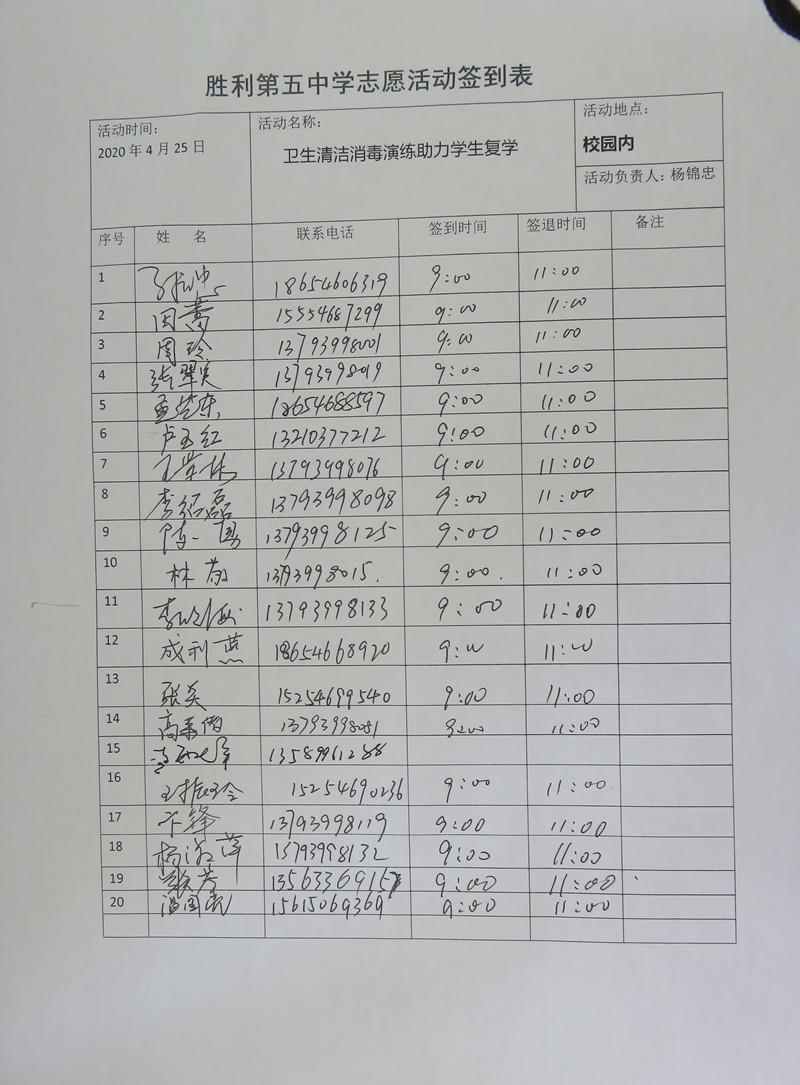 胜利第五中学志愿活动签到表
活动时间： 活动名称： 活动地点：
2020 年 4 月 25 日 卫生清洁消毒演练助力学生复学 校园内
活动负责人：杨锦忠
序号 姓 名 联系电话 签到时间 签退时间 备注
1 18654606319 9:00 11:00
2 周 15554687299 9:00 11:00
3 周玲 13793998001 9:00 11:00
4 张翠 13793998019 9:00 11:00
5 18654688597 9:00 11:00
6 卢玉红 13210377212 9:00 11:00
7 王 13793998076 9:00 11:00
8 李绍磊 13793998098 9:00 11:00
9 陈一勇 13793998125 9:00 11:00
10 林 13793998015. 9:00. 11:00
11 李 13793998133 9:00 11:00
12 成利燕 18654668920 9:00 11:00
13 张英 15254699540 9:00 11:00
14 高 13793998081 9:00 11:00
15 13589961288
16 王振玲 15254690236 9:00 11:00.
17 卞锋 13793998119 9:00 11:00
18 杨淑萍 13793998132 9:00 11:00
19 张芳 13563369157 9:00 11:00
20 温国 15615069369 9:00 11:00